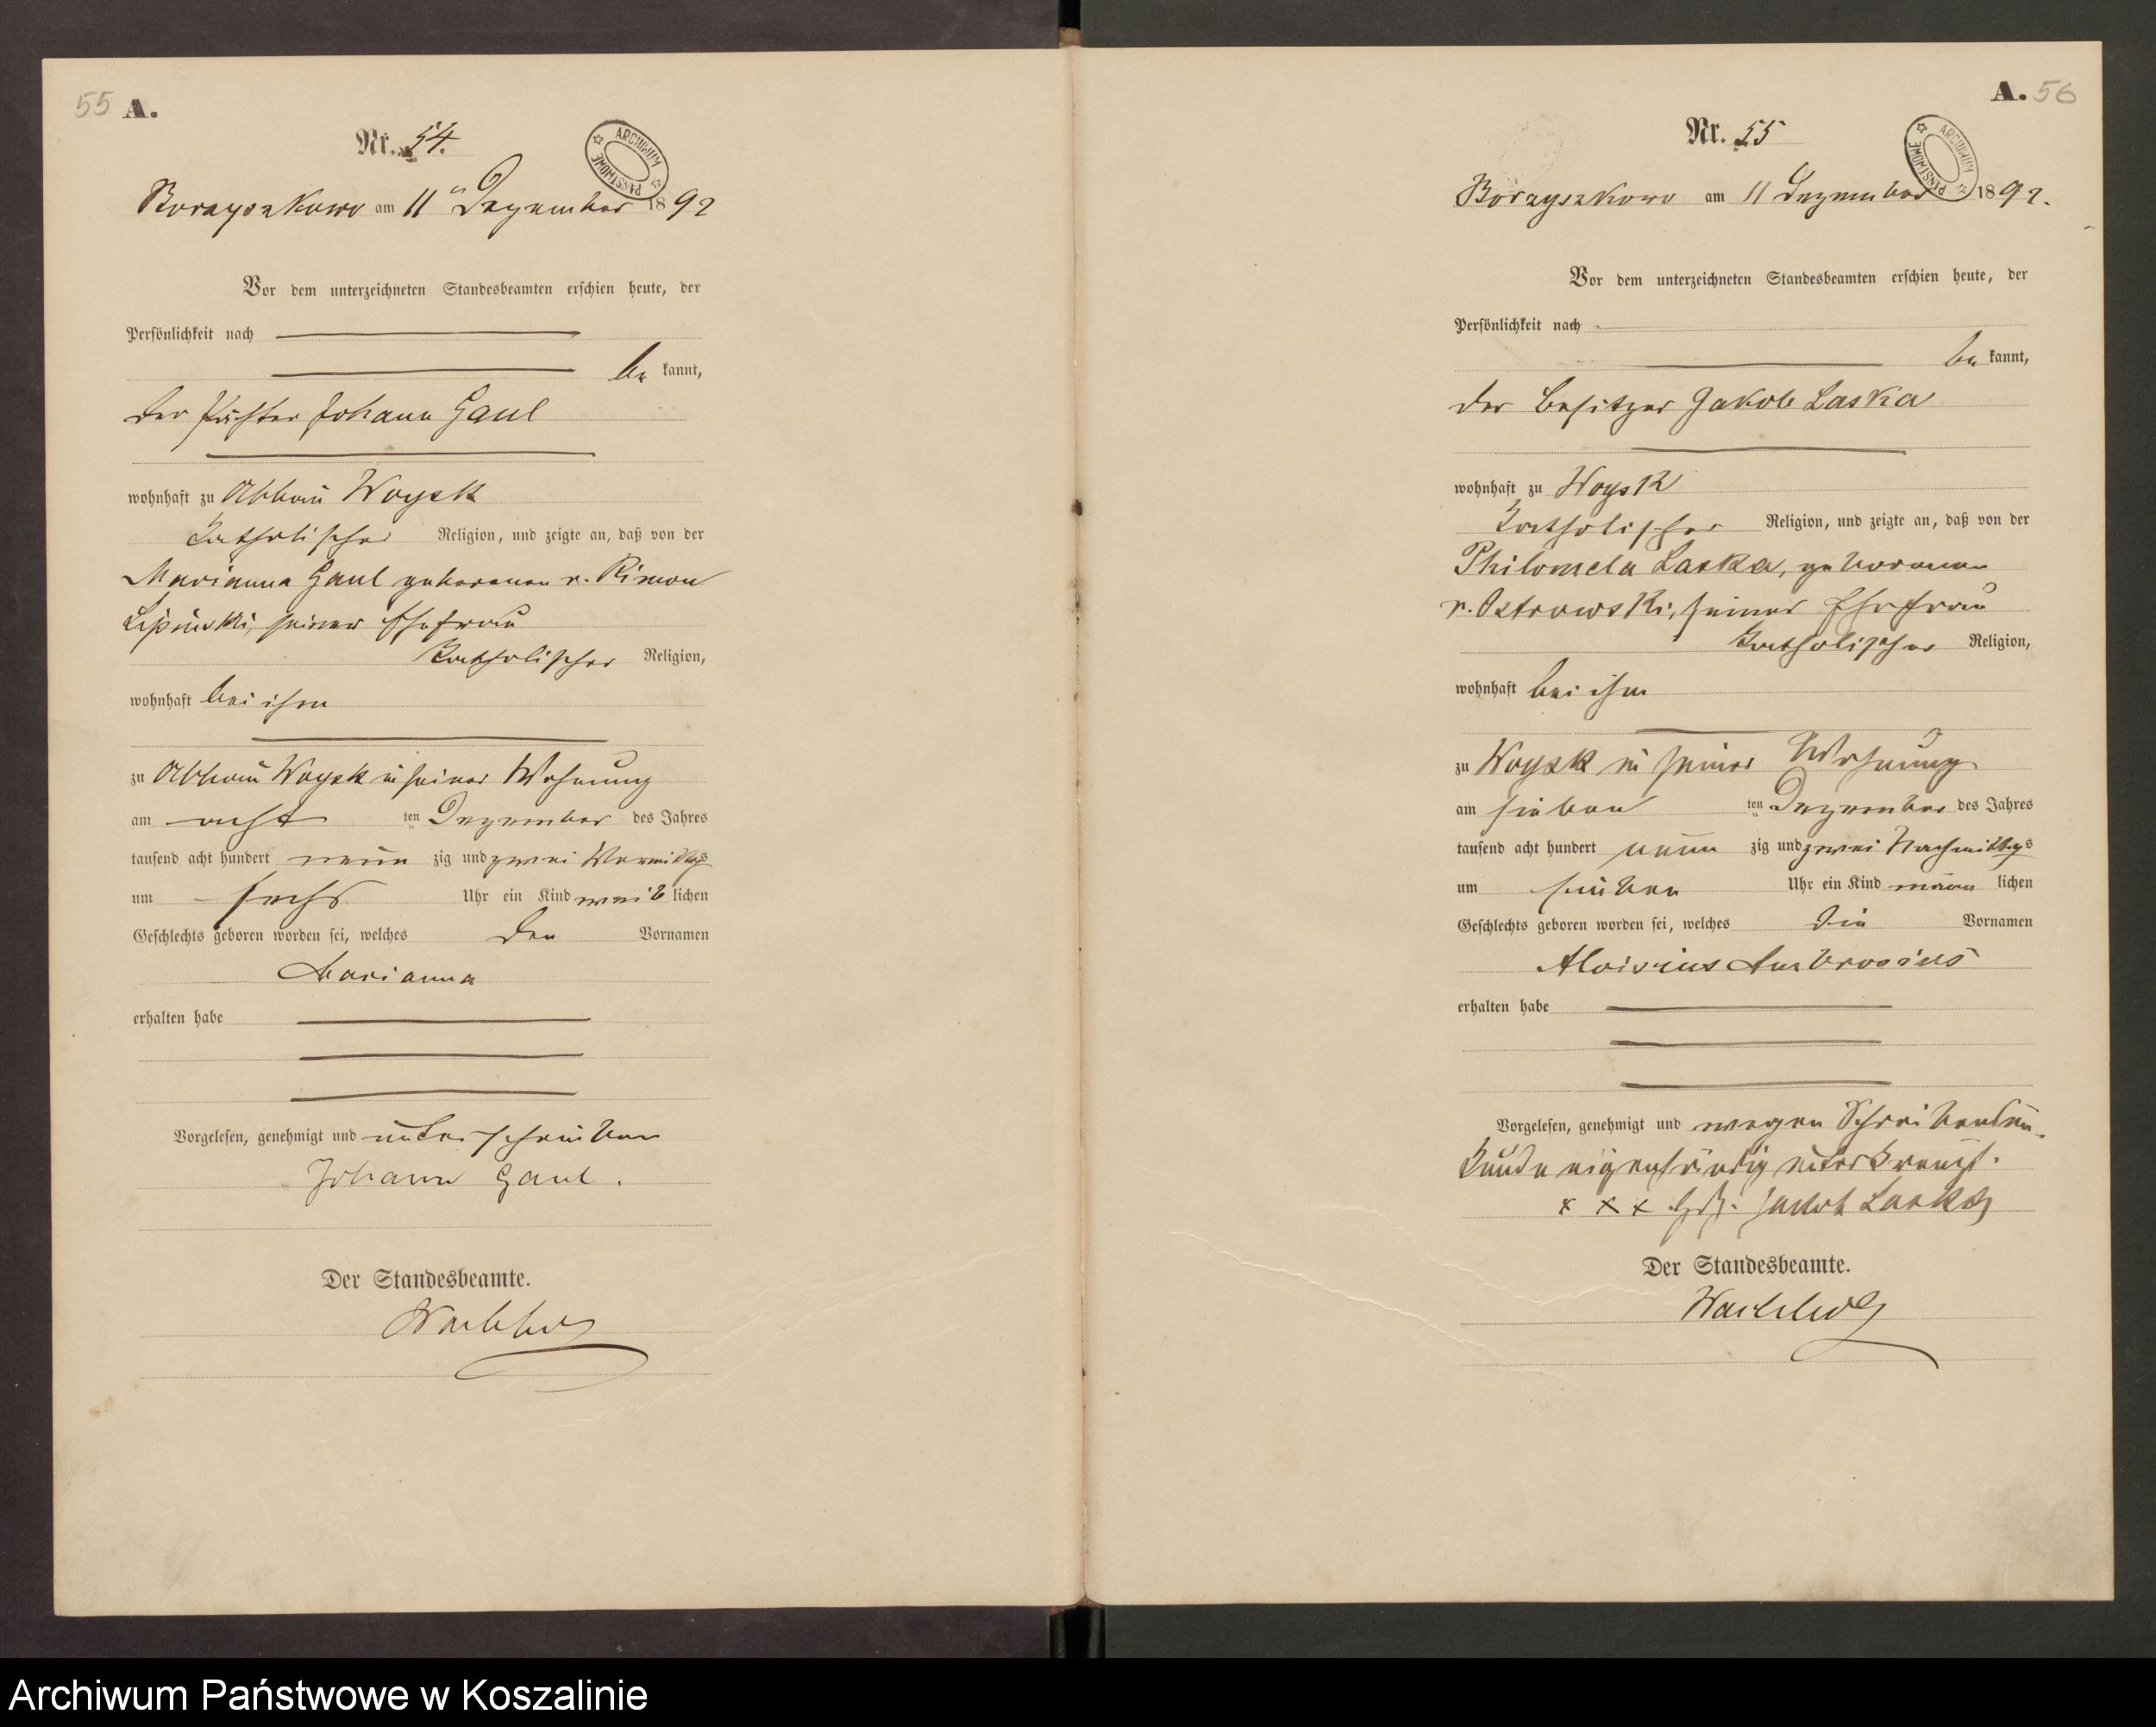 55 A.
Nr. 54.
ARCHIWUM PAŃSTWOWE
Borzyszkowo am 11 ten Dezember 1892
Vor dem unterzeichneten Standesbeamten erschien heute, der
Persönlichkeit nach
be kannt,
der Johann Gaul
wohnhaft zu Abbau Woysk
katholischer Religion, und zeigte an, daß von der
Marianna Gaul geborenen v.
Lipinski, seiner Ehefrau
katholischer Religion,
wohnhaft bei ihm
zu Abbau Woysk in seiner Wohnung
am acht ten Dezember des Jahres
tausend acht hundert neun zig und zwei Vormittags
um sechs Uhr ein Kind weib lichen
Geschlechts geboren worden sei, welches den Vornamen
Marianna
erhalten habe
Vorgelesen, genehmigt und unterschrieben
Johann Gaul.
Der Standesbeamte.
A. 56
Nr. 55
ARCHIWUM PAŃSTWOWE
Borzyszkowo am 11 Dezember 1892.
Vor dem unterzeichneten Standesbeamten erschien heute, der
Persönlichkeit nach
be kannt,
der Besitzer Jakob Laska
wohnhaft zu Woysk
katholischer Religion, und zeigte an, daß von der
Philomela Laska, geborenen
v. Ostrowski, seiner Ehefrau
katholischer Religion,
wohnhaft bei ihm
zu Woysk in seiner Wohnung
am sieben ten Dezember des Jahres
tausend acht hundert neun zig und zwei Nachmittags
um sieben Uhr ein Kind männ lichen
Geschlechts geboren worden sei, welches die Vornamen
Aloisius Ambrosius
erhalten habe
Vorgelesen, genehmigt und wegen Schreibensun-
kunde eigenhändig unterkreuzt.
x x x Jakob Laska
Der Standesbeamte.
Archiwum Państwowe w Koszalinie